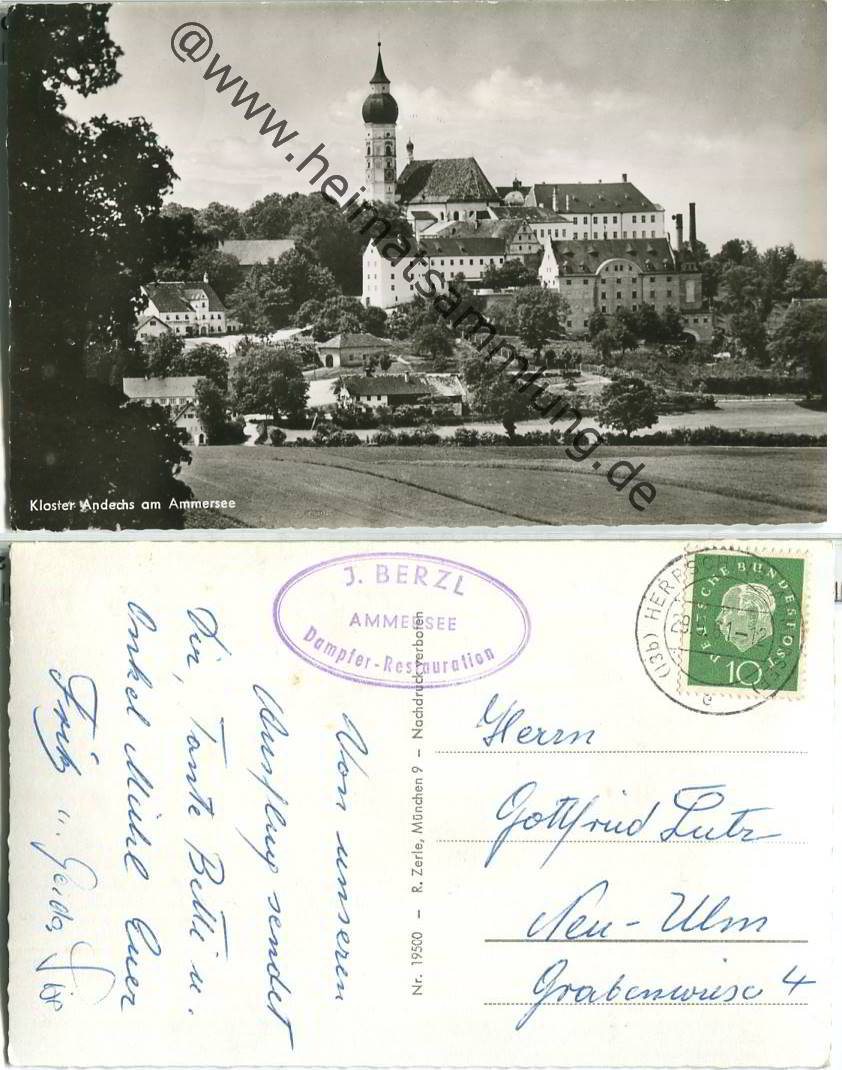 @www.heimatsammlung.de
Kloster Andechs am Ammersee
J. BERZL
AMMERSEE
Dampfer-Restauration
(13b) HERRSCH
DEUTSCHE BUNDESPOST
10
e
Von unseren
Ausflug sendet
Dir, Tante Betti u.
Onkel Michl Euer
Fritz u.
Nr. 19500 – R. Zerle, München 9 – Nachdruck verboten
Herrn
Gottfried Lutz
Neu-Ulm
Grabenwiese 4